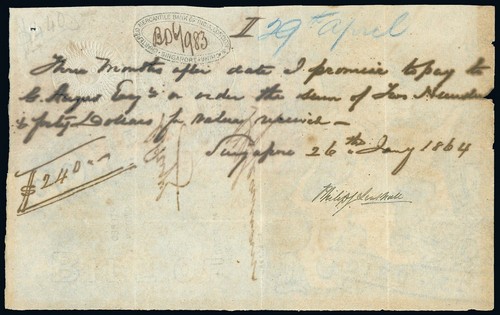 CHARTERED MERCANTILE BANK OF INDIA
SINGAPORE
BD4/983
II
29th April
Three months after date I promise to pay to
C. Angus Esq or order the sum of Two Hundred
& forty Dollars for value received —
Singapore 26th Jany 1864
$240
Philip J.